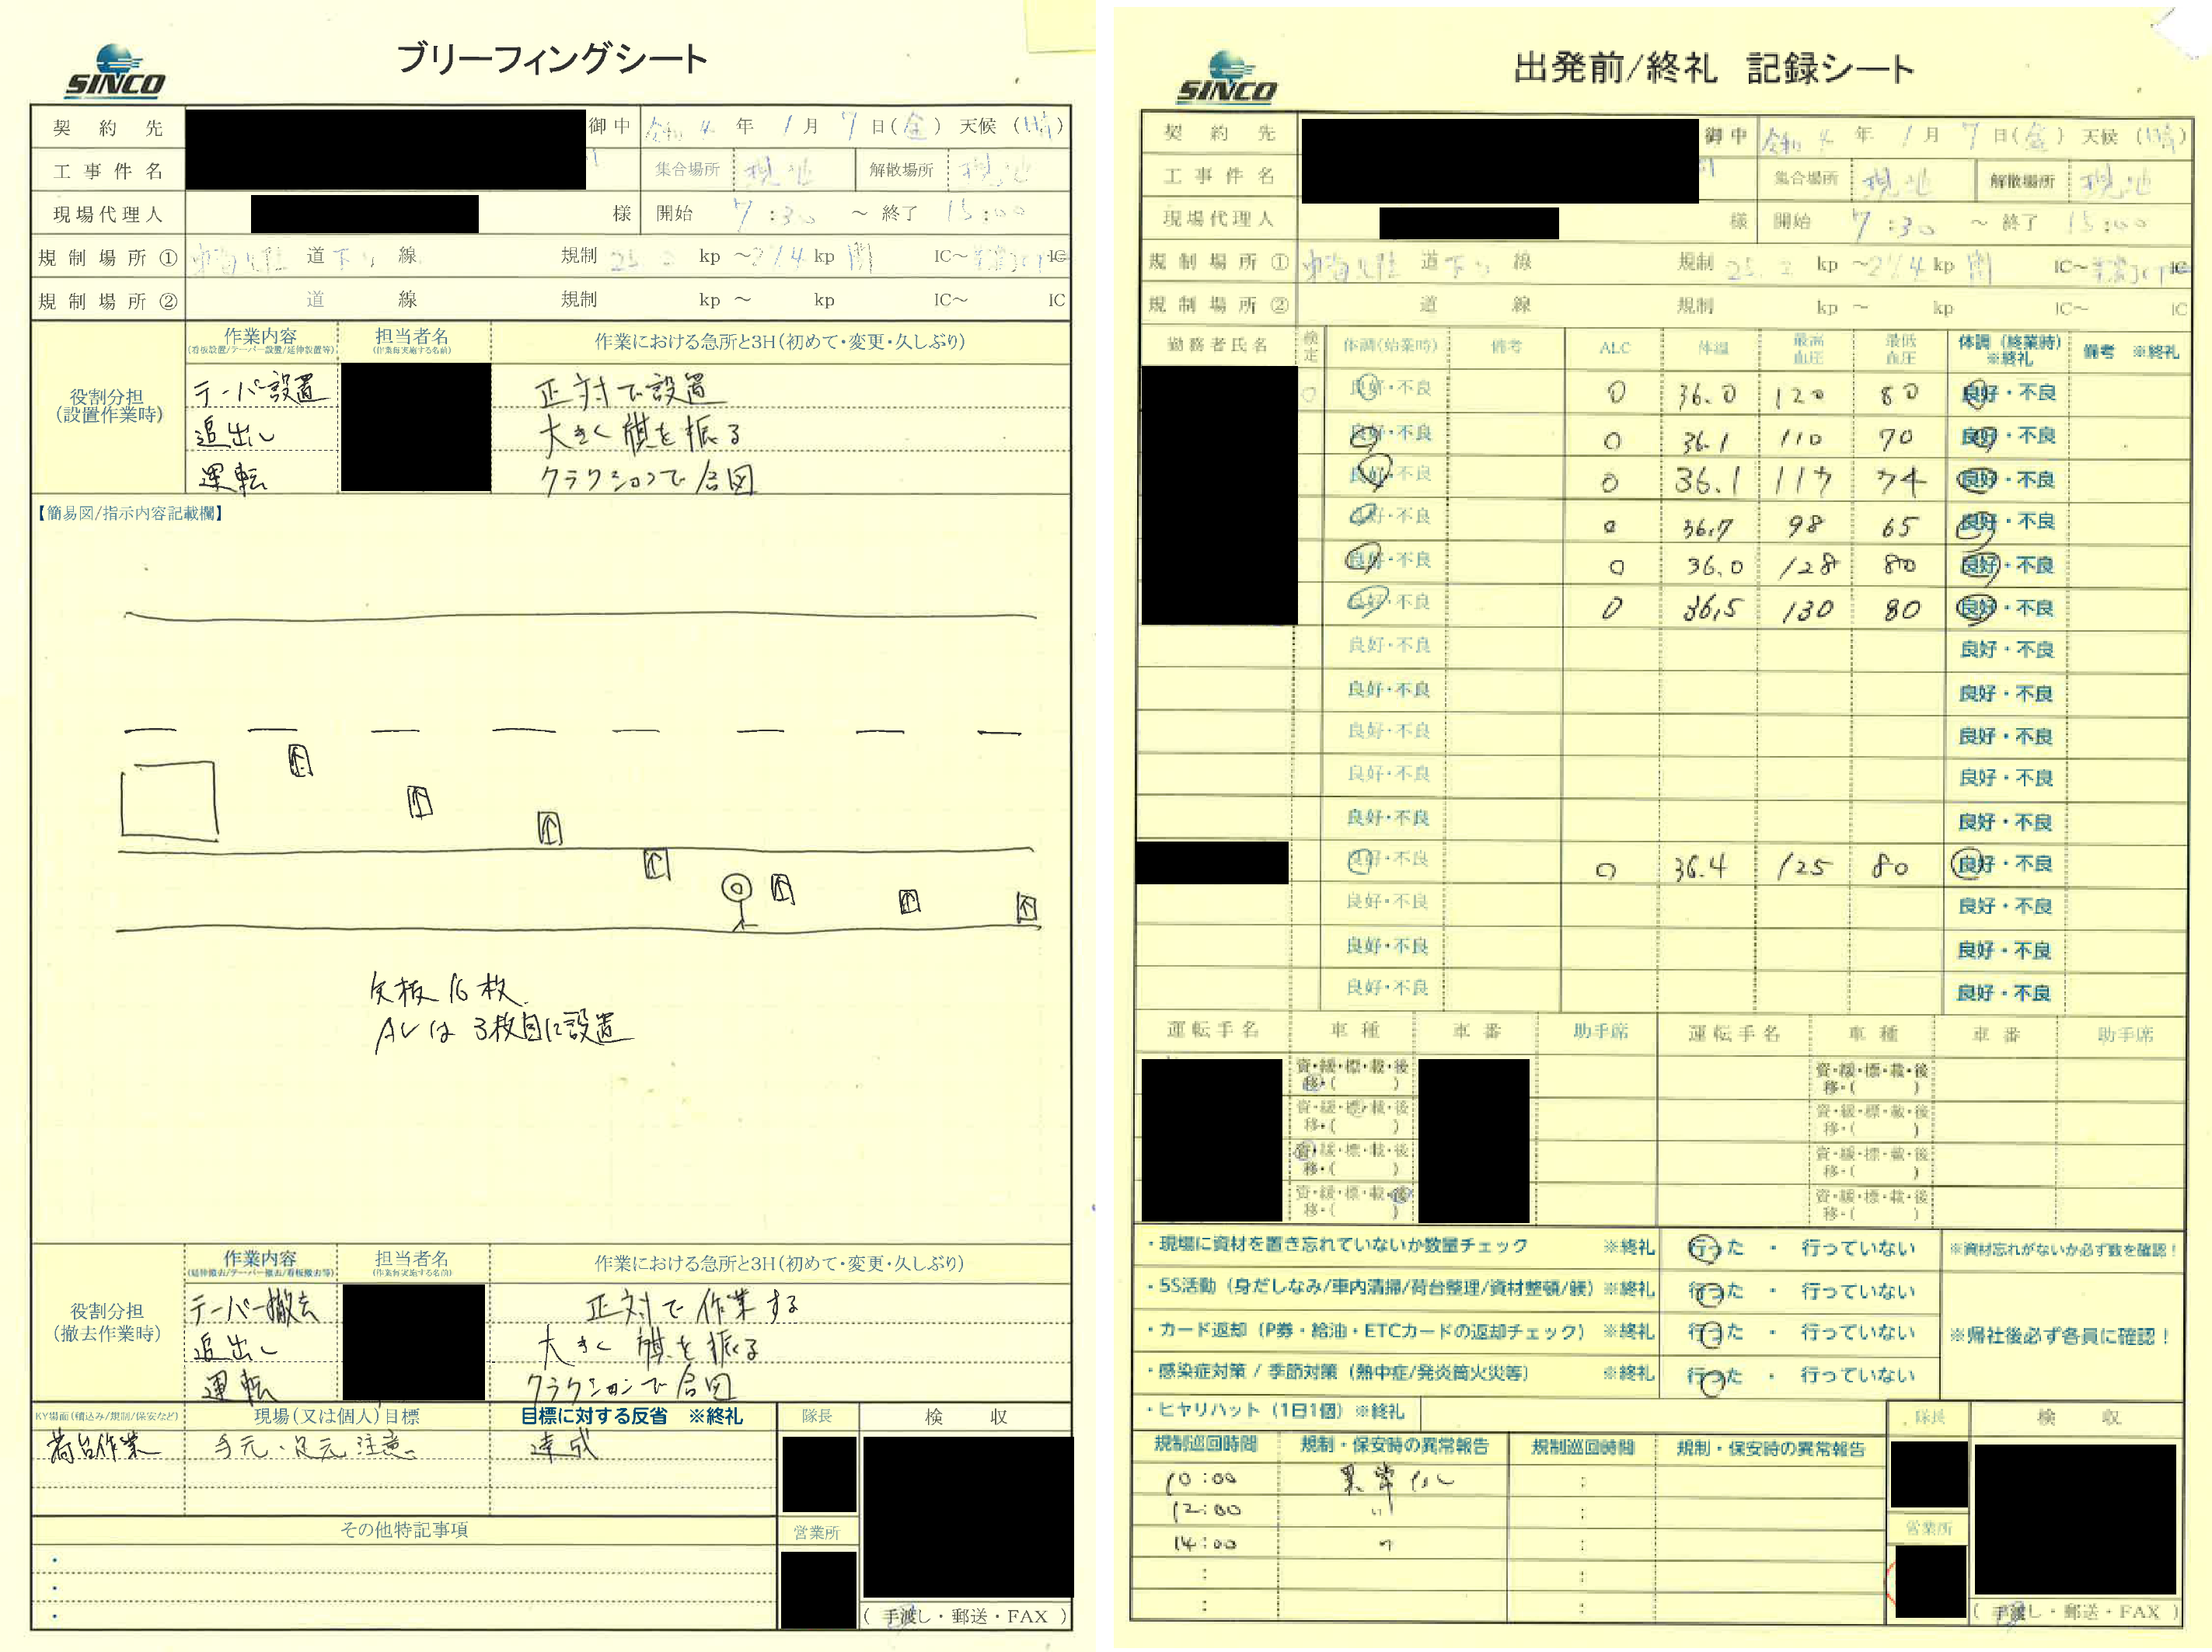 ブリーフィングシート
SINCO
契約先 御中 令和 4 年 1 月 7 日(金) 天候 (晴)
工事件名 集合場所 現地 解散場所 現地
現場代理人 様 開始 7:30 ~ 終了 15:00
規制場所① 道 下り 線 規制 25. kp ~ 27.4 kp 関 IC~ IC
規制場所② 道 線 規制 kp ~ kp IC~ IC
役割分担 (設置作業時)
作業内容 (看板設置/テーパー設置/延伸設置等) 担当者名 (作業毎実施する名前) 作業における急所と3H(初めて・変更・久しぶり)
テーパ設置 正対で設置
追出し 大きく旗を振る
運転 クラクションで合図
【簡易図/指示内容記載欄】
矢板 16 枚
ALは 3枚目に設置
役割分担 (撤去作業時)
作業内容 (延伸撤去/テーパー撤去/看板撤去等) 担当者名 (作業毎実施する名前) 作業における急所と3H(初めて・変更・久しぶり)
テーパー撤去 正対で作業する
追出し 大きく旗を振る
運転 クラクションで合図
KY場面(積込み/規制/保安など) 現場(又は個人)目標 目標に対する反省 ※終礼 隊長 検収
荷台作業 手元・足元注意。 達成
その他特記事項 営業所
・
・
・
( 手渡し・郵送・FAX )
出発前/終礼 記録シート
SINCO
契約先 御中 令和 4 年 1 月 7 日(金) 天候 (晴)
工事件名 集合場所 現地 解散場所 現地
現場代理人 様 開始 7:30 ~ 終了 15:00
規制場所① 道 下り 線 規制 25. kp ~ 27.4 kp 関 IC~ IC
規制場所② 道 線 規制 kp ~ kp IC~ IC
勤務者氏名 検定 体調(始業時) 備考 ALC 体温 最高血圧 最低血圧 体調(終業時)※終礼 備考 ※終礼
○ 良好・不良 0 36.0 120 80 良好・不良
良好・不良 0 36.1 110 70 良好・不良
良好・不良 0 36.1 117 74 良好・不良
良好・不良 0 36.7 98 65 良好・不良
良好・不良 0 36.0 128 80 良好・不良
良好・不良 0 36.5 130 80 良好・不良
良好・不良 良好・不良
良好・不良 良好・不良
良好・不良 良好・不良
良好・不良 良好・不良
良好・不良 良好・不良
良好・不良 0 36.4 125 80 良好・不良
良好・不良 良好・不良
良好・不良 良好・不良
良好・不良 良好・不良
運転手名 車種 車番 助手席 運転手名 車種 車番 助手席
資・緩・標・載・後 資・緩・標・載・後
移・( ) 移・( )
資・緩・標・載・後 資・緩・標・載・後
移・( ) 移・( )
資・緩・標・載・後 資・緩・標・載・後
移・( ) 移・( )
資・緩・標・載・後 資・緩・標・載・後
移・( ) 移・( )
・現場に資材を置き忘れていないか数量チェック ※終礼 行った ・ 行っていない ※資材忘れがないか必ず数を確認!
・5S活動(身だしなみ/車内清掃/荷台整理/資材整頓/躾) ※終礼 行った ・ 行っていない
・カード返却(P券・給油・ETCカードの返却チェック) ※終礼 行った ・ 行っていない ※帰社後必ず各員に確認!
・感染症対策 / 季節対策(熱中症/発炎筒火災等) ※終礼 行った ・ 行っていない
・ヒヤリハット(1日1個)※終礼 隊長 検収
規制巡回時間 規制・保安時の異常報告 規制巡回時間 規制・保安時の異常報告
10:00 異常なし :
12:00 〃 :
14:00 〃 : 営業所
: :
: :
( 手渡し・郵送・FAX )